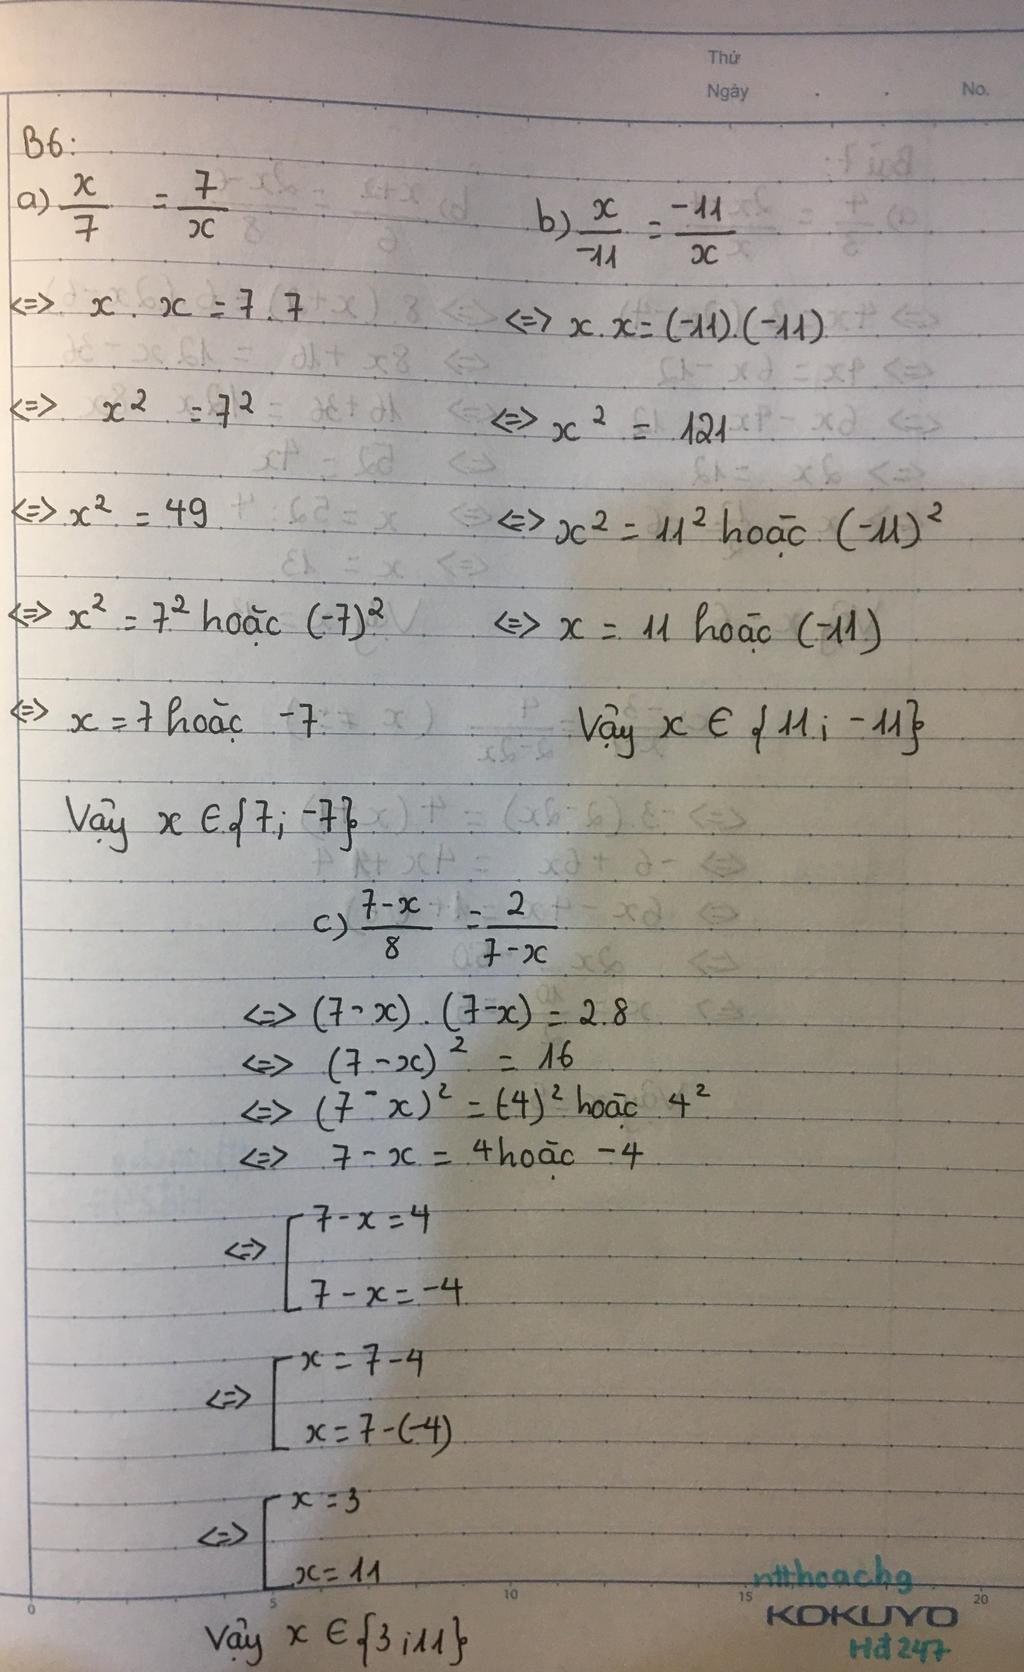 Thứ
Ngày . . No.
B6:
a) x/7 = 7/x
<=> x . x = 7.7
<=> x² = 7²
<=> x² = 49
<=> x² = 7² hoặc (-7)²
<=> x = 7 hoặc -7
Vậy x ∈ {7; -7}
b) x/-11 = -11/x
<=> x.x = (-11).(-11)
<=> x² = 121
<=> x² = 11² hoặc (-11)²
<=> x = 11 hoặc (-11)
Vậy x ∈ {11; -11}
c) 7-x/8 = 2/7-x
<=> (7-x).(7-x) = 2.8
<=> (7-x)² = 16
<=> (7-x)² = (-4)² hoặc 4²
<=> 7-x = 4 hoặc -4
<=> [ 7-x = 4
7-x = -4
<=> [ x = 7-4
x = 7-(-4)
<=> [ x = 3
x = 11
Vậy x ∈ {3;11}
0 5 10 15 20
ntthoachg
KOKUYO
Hđ247